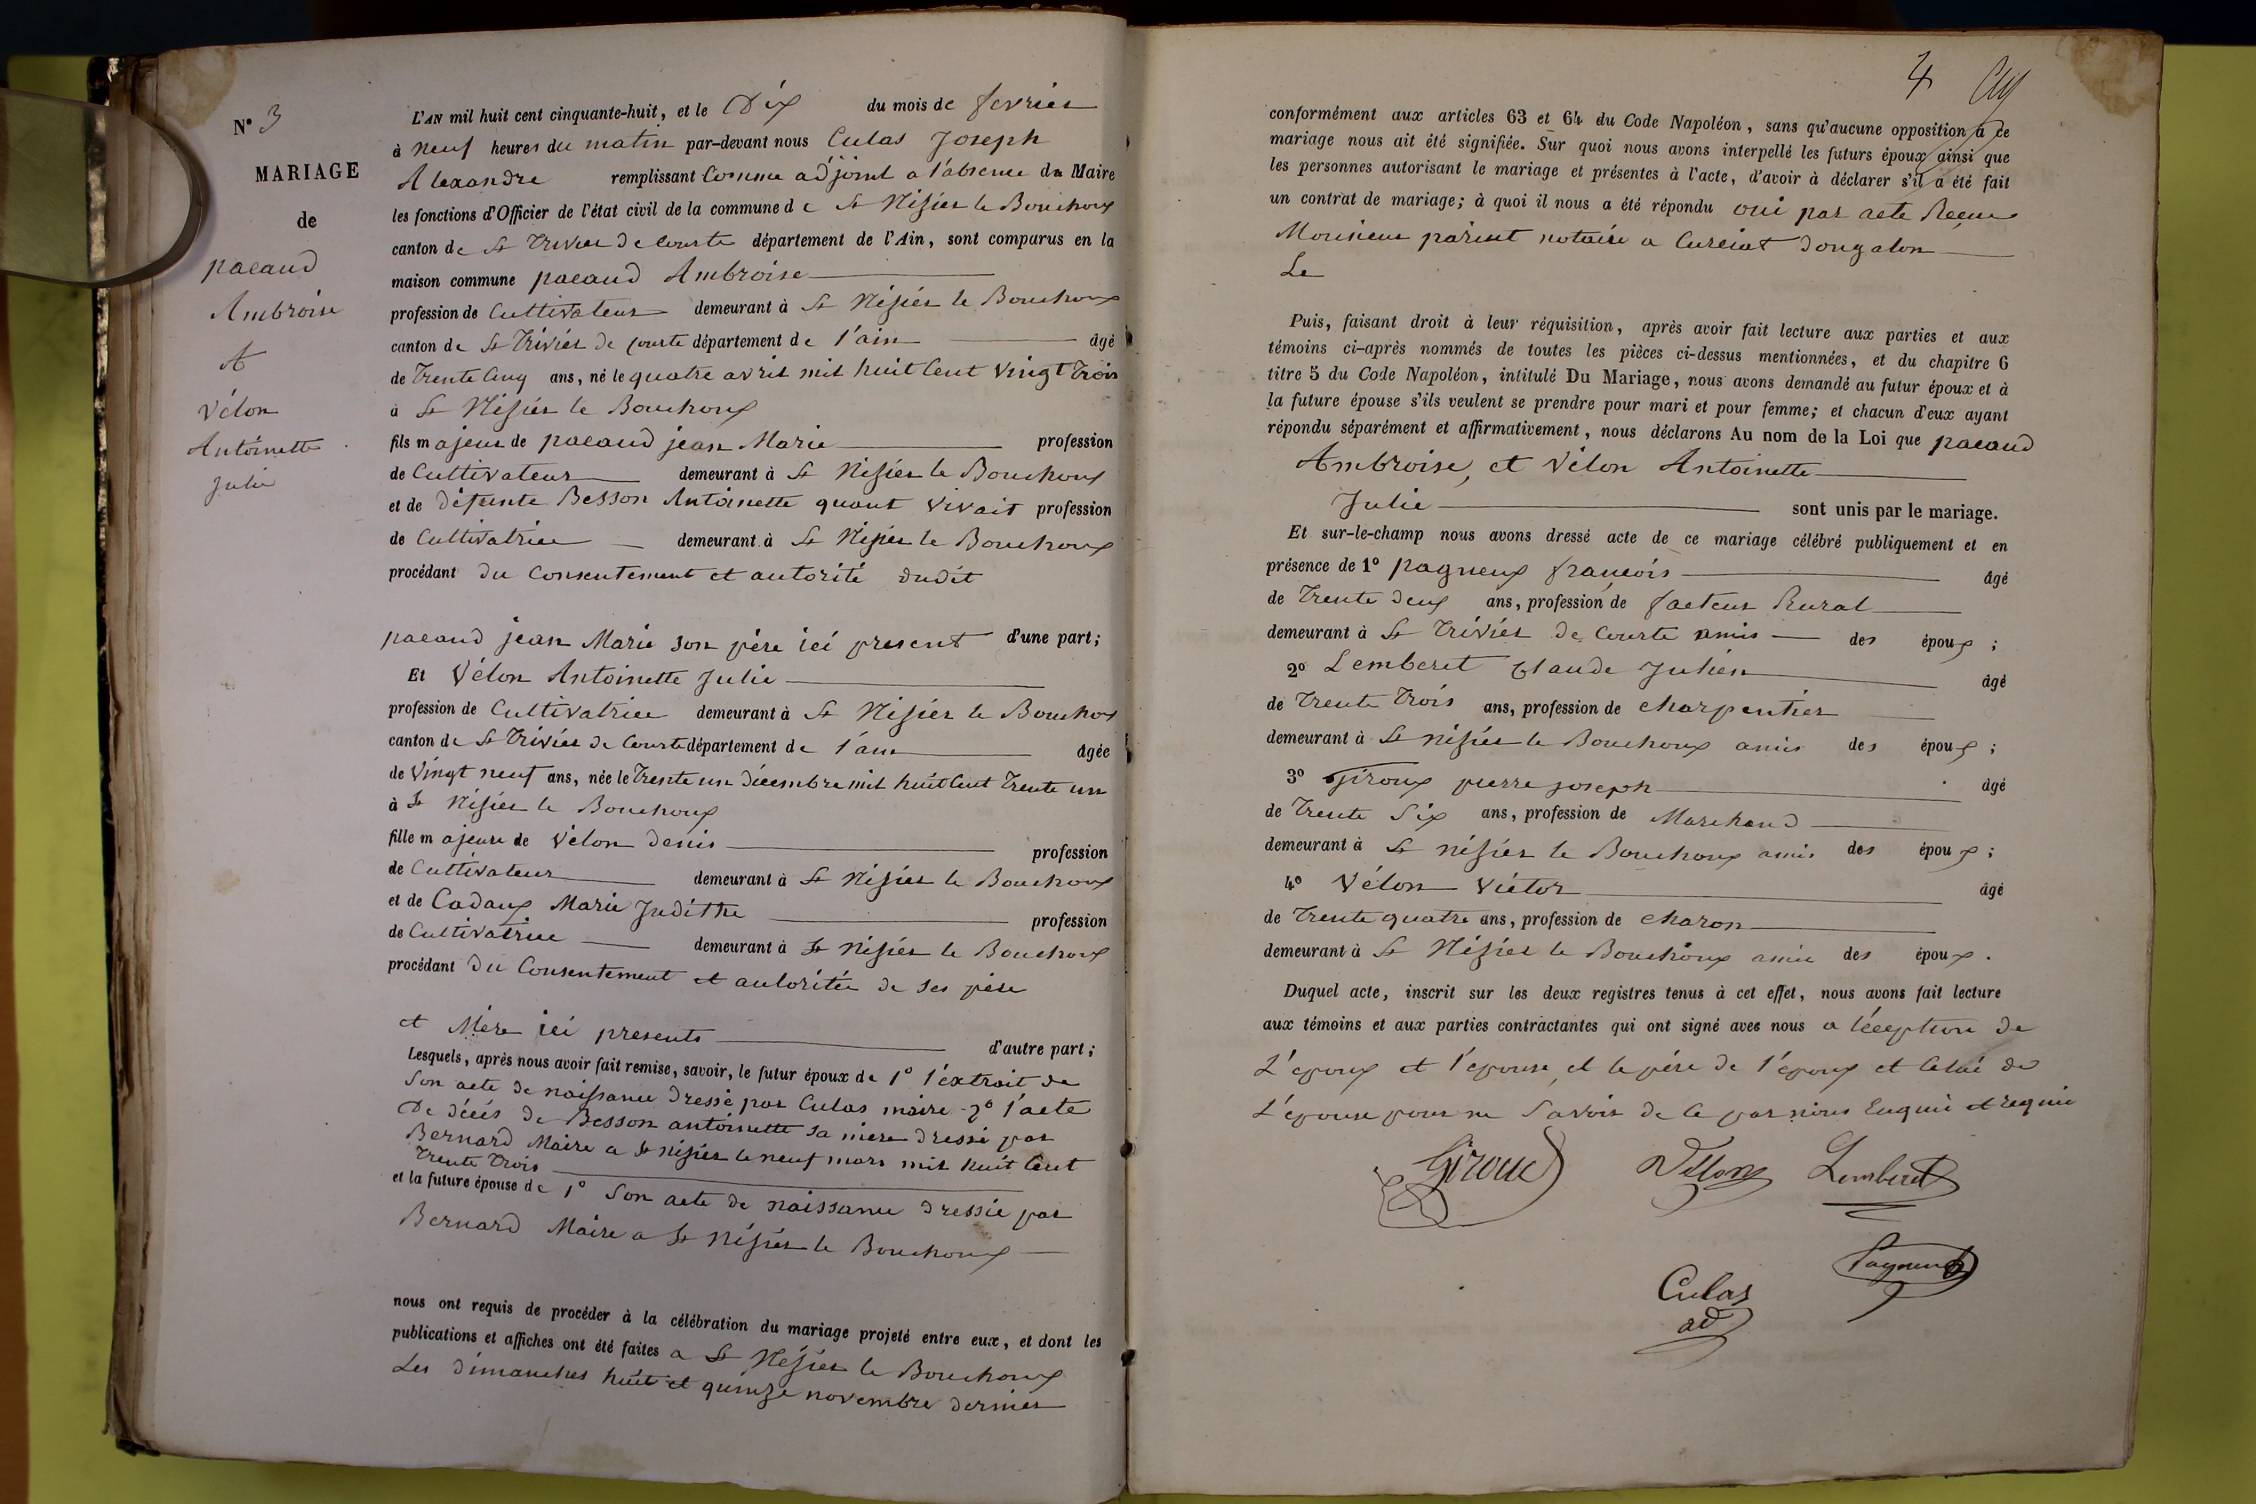 N° 3
MARIAGE
de
pacaud
Ambroise
A
Vélon
Antoinette
Julie
L'AN mil huit cent cinquante-huit, et le Dix du mois de fevrier
à neuf heures du matin par-devant nous Culas Joseph
Alexandre remplissant Comme adjoint a l'absence du Maire
les fonctions d'Officier de l'état civil de la commune de St Nisier le Bouchoux
canton de St Trivier de Courte département de l'Ain, sont comparus en la
maison commune pacaud Ambroise
profession de Cultivateur demeurant à St Nisier le Bouchoux
canton de St Trivier de Courte département de l'ain âgé
de Trente Cinq ans, né le quatre avril mil huit Cent vingt Trois
à St Nisier le Bouchoux
fils majeur de pacaud jean Marie profession
de Cultivateur demeurant à St Nisier le Bouchoux
et de défunte Besson Antoinette quant vivait profession
de Cultivatrice demeurant à St Nisier le Bouchoux
procédant du Consentement et autorité dudit
pacaud jean Marie son père ici present d'une part;
Et Vélon Antoinette Julie
profession de Cultivatrice demeurant à St Nisier le Bouchox
canton de St Trivier de Courte département de l'ain âgée
de Vingt neuf ans, née le Trente un décembre mil huit Cent Trente un
à St Nisier le Bouchoux
fille majeure de Vélon denis profession
de Cultivateur demeurant à St Nisier le Bouchoux
et de Cadaux Marie Judithe profession
de Cultivatrice demeurant à St Nisier le Bouchoux
procédant du Consentement et autoritée de ses père
et Mère ici presents d'autre part;
Lesquels, après nous avoir fait remise, savoir, le futur époux de 1° l'éxtrait de
Son acte de naissance dressé par Culas maire 2° l'acte
De décés de Besson antoinette sa mère dressé par
Bernard Maire a St Nisier le neuf mars mil huit Cent
Trente Trois
et la future épouse de 1° Son acte de naissance dressée par
Bernard Maire a St Nisier le Bouchoux
nous ont requis de procéder à la célébration du mariage projeté entre eux, et dont les
publications et affiches ont été faites a St Nisier le Bouchoux
Les dimanches huit et quinze novembre dernier
4
conformément aux articles 63 et 64 du Code Napoléon, sans qu'aucune opposition à ce
mariage nous ait été signifiée. Sur quoi nous avons interpellé les futurs époux ainsi que
les personnes autorisant le mariage et présentes à l'acte, d'avoir à déclarer s'il a été fait
un contrat de mariage; à quoi il nous a été répondu oui par acte Reçue
Monsieur parent notaire a Curciat dongalon
Le
Puis, faisant droit à leur réquisition, après avoir fait lecture aux parties et aux
témoins ci-après nommés de toutes les pièces ci-dessus mentionnées, et du chapitre 6
titre 5 du Code Napoléon, intitulé Du Mariage, nous avons demandé au futur époux et à
la future épouse s'ils veulent se prendre pour mari et pour femme; et chacun d'eux ayant
répondu séparément et affirmativement, nous déclarons Au nom de la Loi que pacaud
Ambroise, et Vélon Antoinette
Julie sont unis par le mariage.
Et sur-le-champ nous avons dressé acte de ce mariage célébré publiquement et en
présence de 1° pagneux françois âgé
de Trente deux ans, profession de facteur Rural
demeurant à St Trivier de Courte amis des époux;
2° Lemberet Claude Julien âgé
de Trente Trois ans, profession de charpentier
demeurant à St nisier le Bouchoux amis des époux;
3° Giroux pierre joseph âgé
de Trente Six ans, profession de Marchand
demeurant à St nisier le Bouchoux amis des époux;
4° Vélon Victor âgé
de Trente quatre ans, profession de charon
demeurant à St Nisier le Bouchoux amis des époux.
Duquel acte, inscrit sur les deux registres tenus à cet effet, nous avons fait lecture
aux témoins et aux parties contractantes qui ont signé avec nous a l'éception de
L'époux et l'épouse, et le père de l'époux et Celui de
L'épouse pour ne Savoir de Ce par nous Enquie et requie
Giroud Vellon Lemberet
Pagneux
Culas
ad